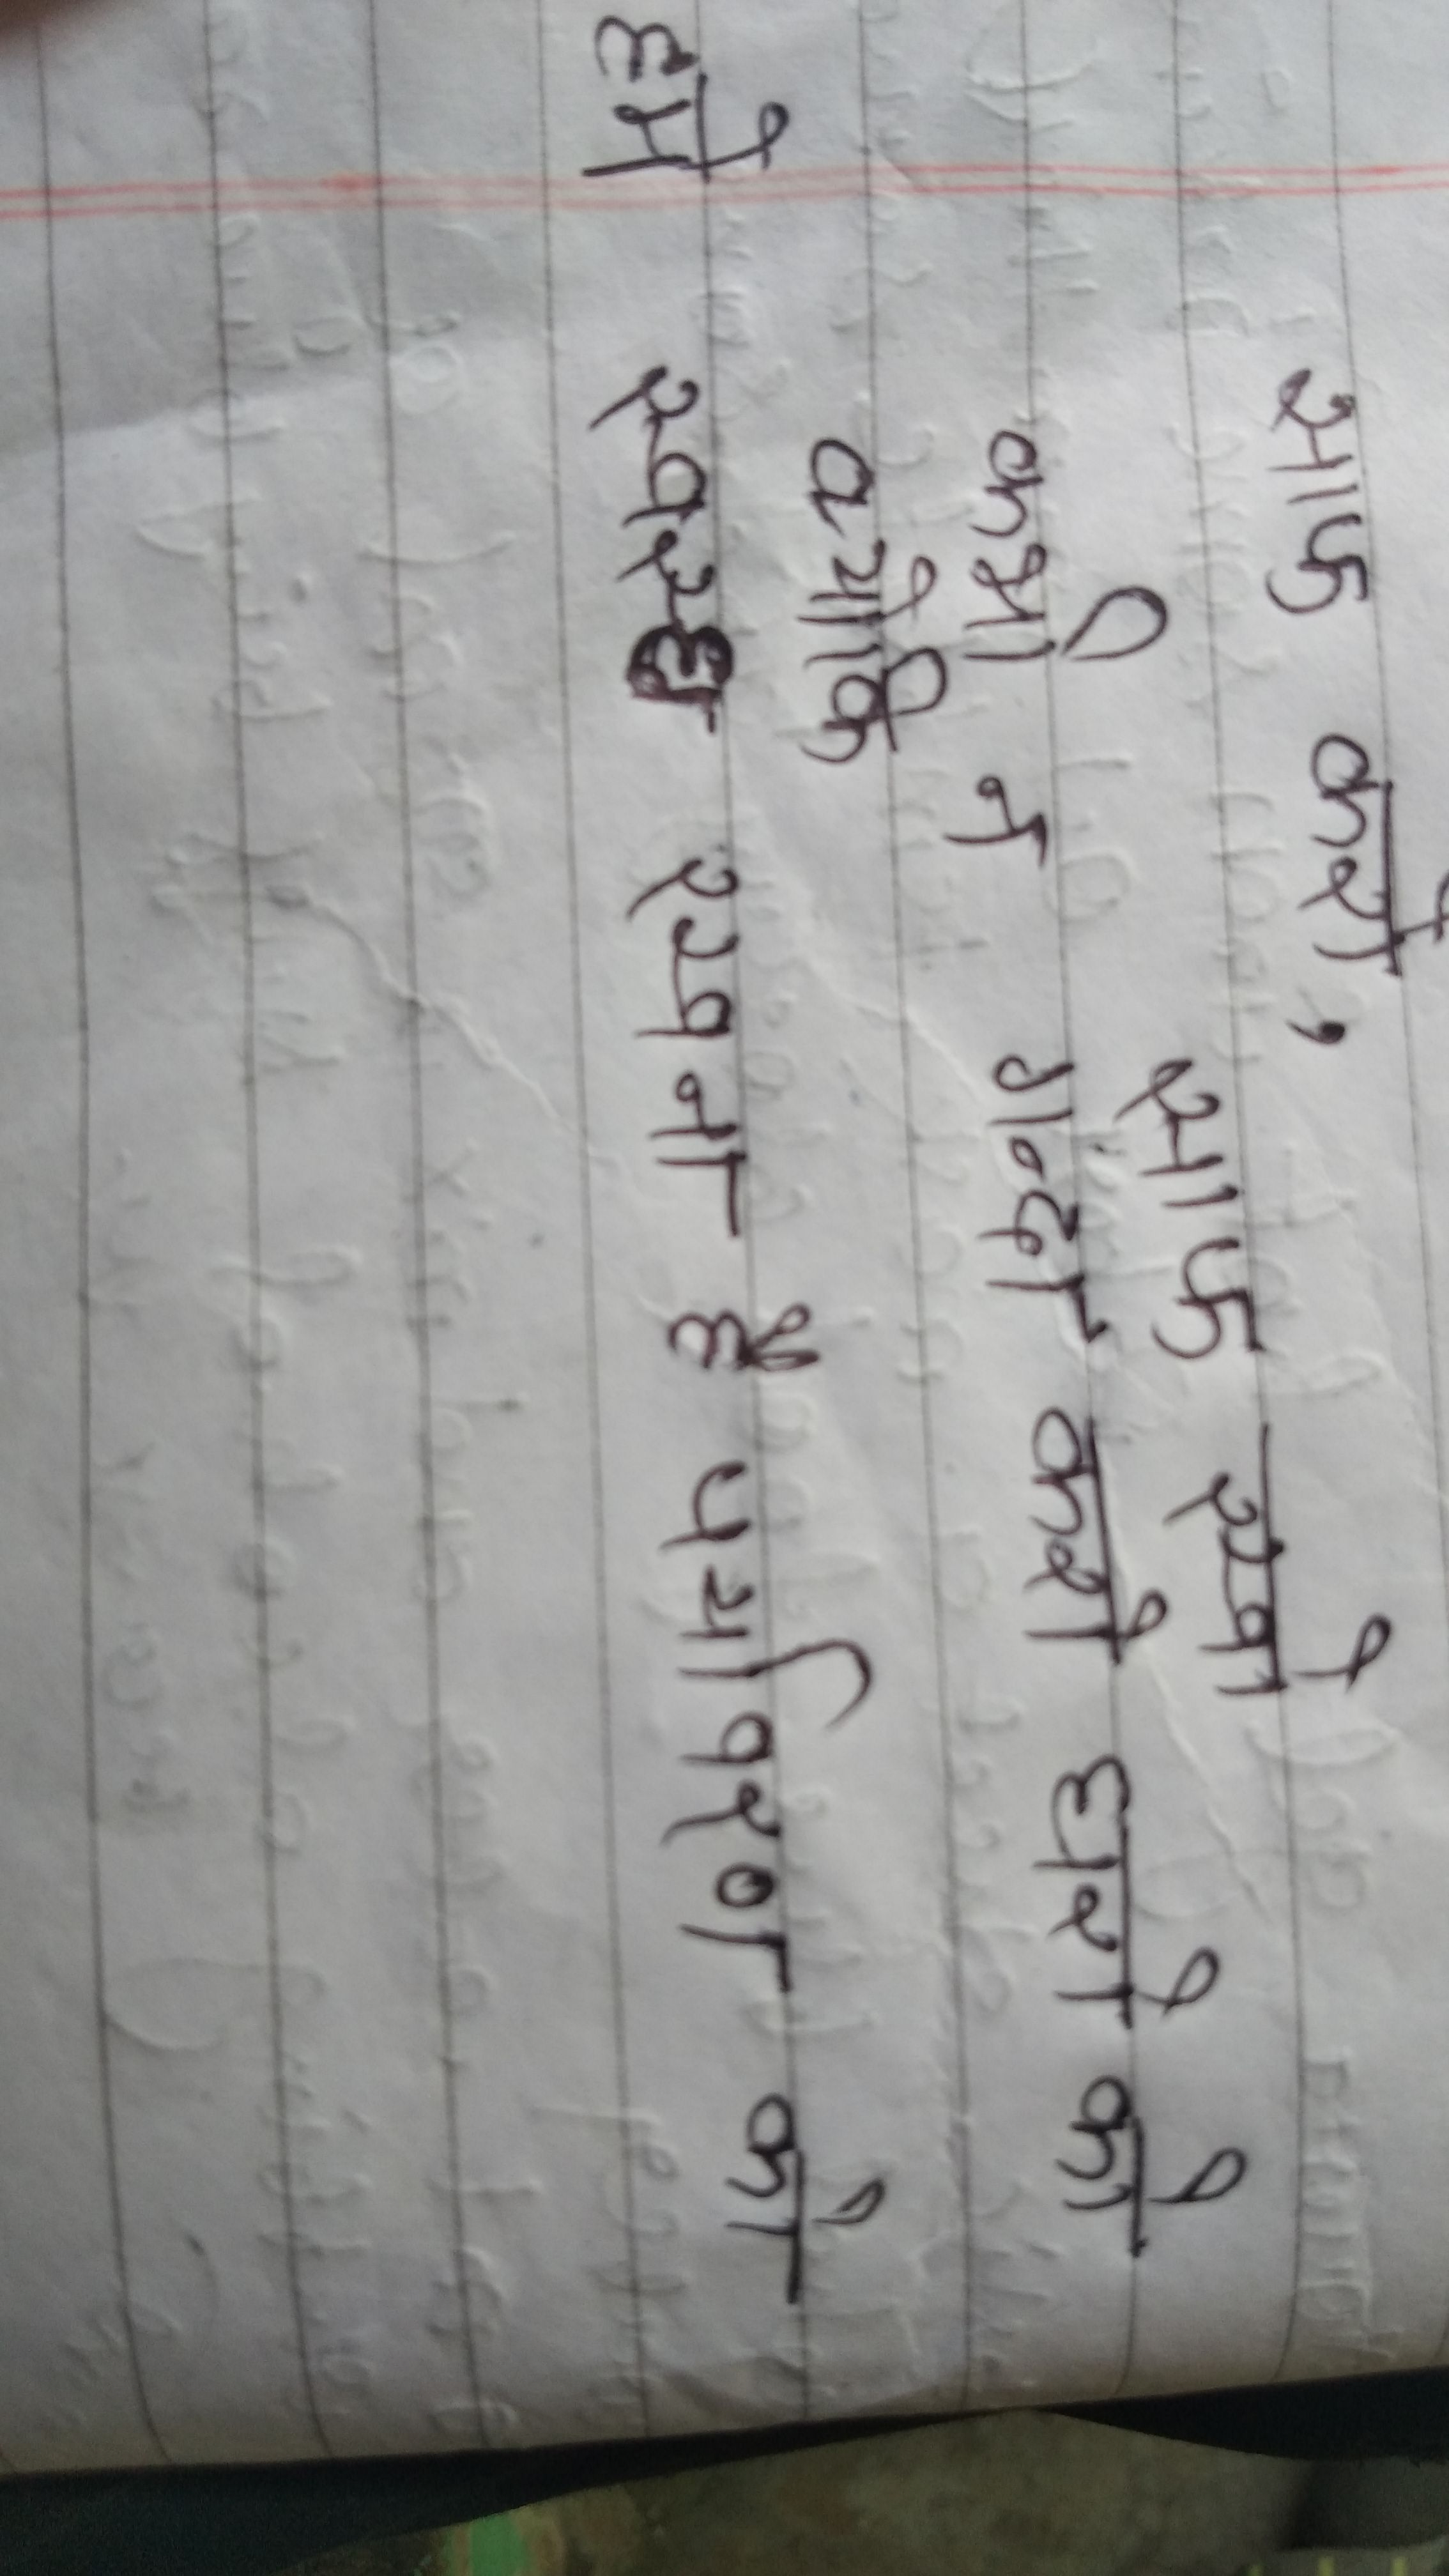 साफ करो,
साफ रखो
कभी न गन्दा करो घारो को
क्योकि
हमे स्वस्छ रखना हैं पर्यावरण को